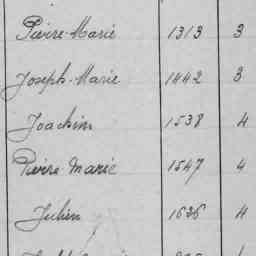 Pierre-Marie 1313 3
Joseph-Marie 1442 3
Joachim 1538 4
Pierre Marie 1547 4
Julien 1636 4